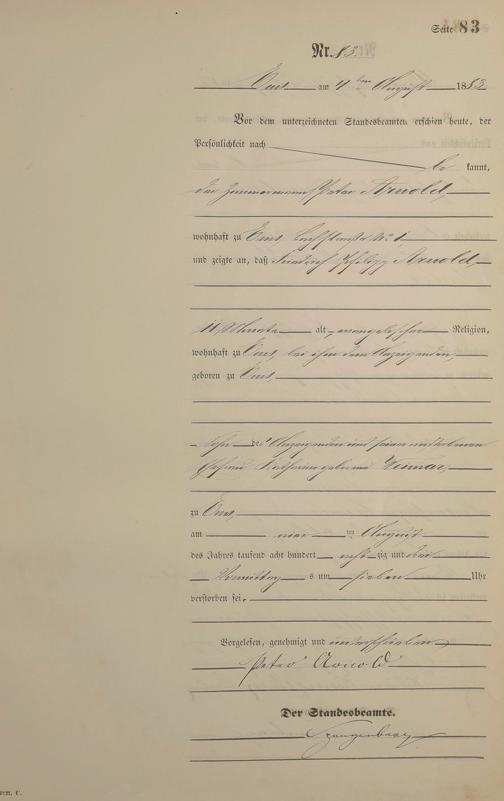 Seite 83
Nr. 83.
Ems am 4ten August 1883
Vor dem unterzeichneten Standesbeamten erschien heute, der
Persönlichkeit nach
be kannt,
der Zimmermann Peter Arnold,
wohnhaft zu Ems, No 1,
und zeigte an, daß Friedrich Philipp Arnold,
11 Monate alt, evangelischer Religion,
wohnhaft zu Ems, bei ihm dem Anzeigenden,
geboren zu Ems,
Sohn des Anzeigenden und seiner verstorbenen
Ehefrau Katharina geborene Weimar,
zu Ems,
am vier ten August
des Jahres tausend acht hundert acht zig und drei
Vormittag s um sieben Uhr
verstorben sei.
Vorgelesen, genehmigt und unterschrieben
Peter Arnold
Der Standesbeamte.